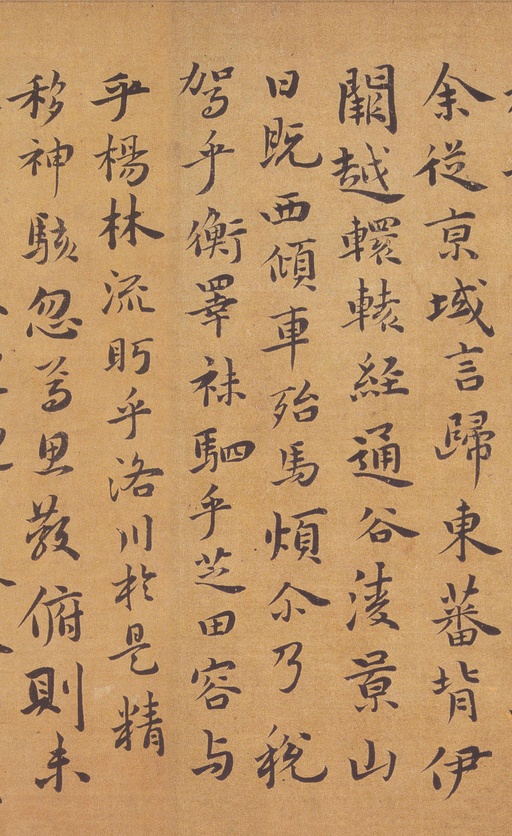 余從京域言歸東蕃背伊
闕越轘轅經通谷淩景山
日既西傾車殆馬煩尒乃稅
駕乎衡睪秣駟乎芝田容与
乎楊林流眄乎洛川於是精
移神駭忽焉思散俯則未